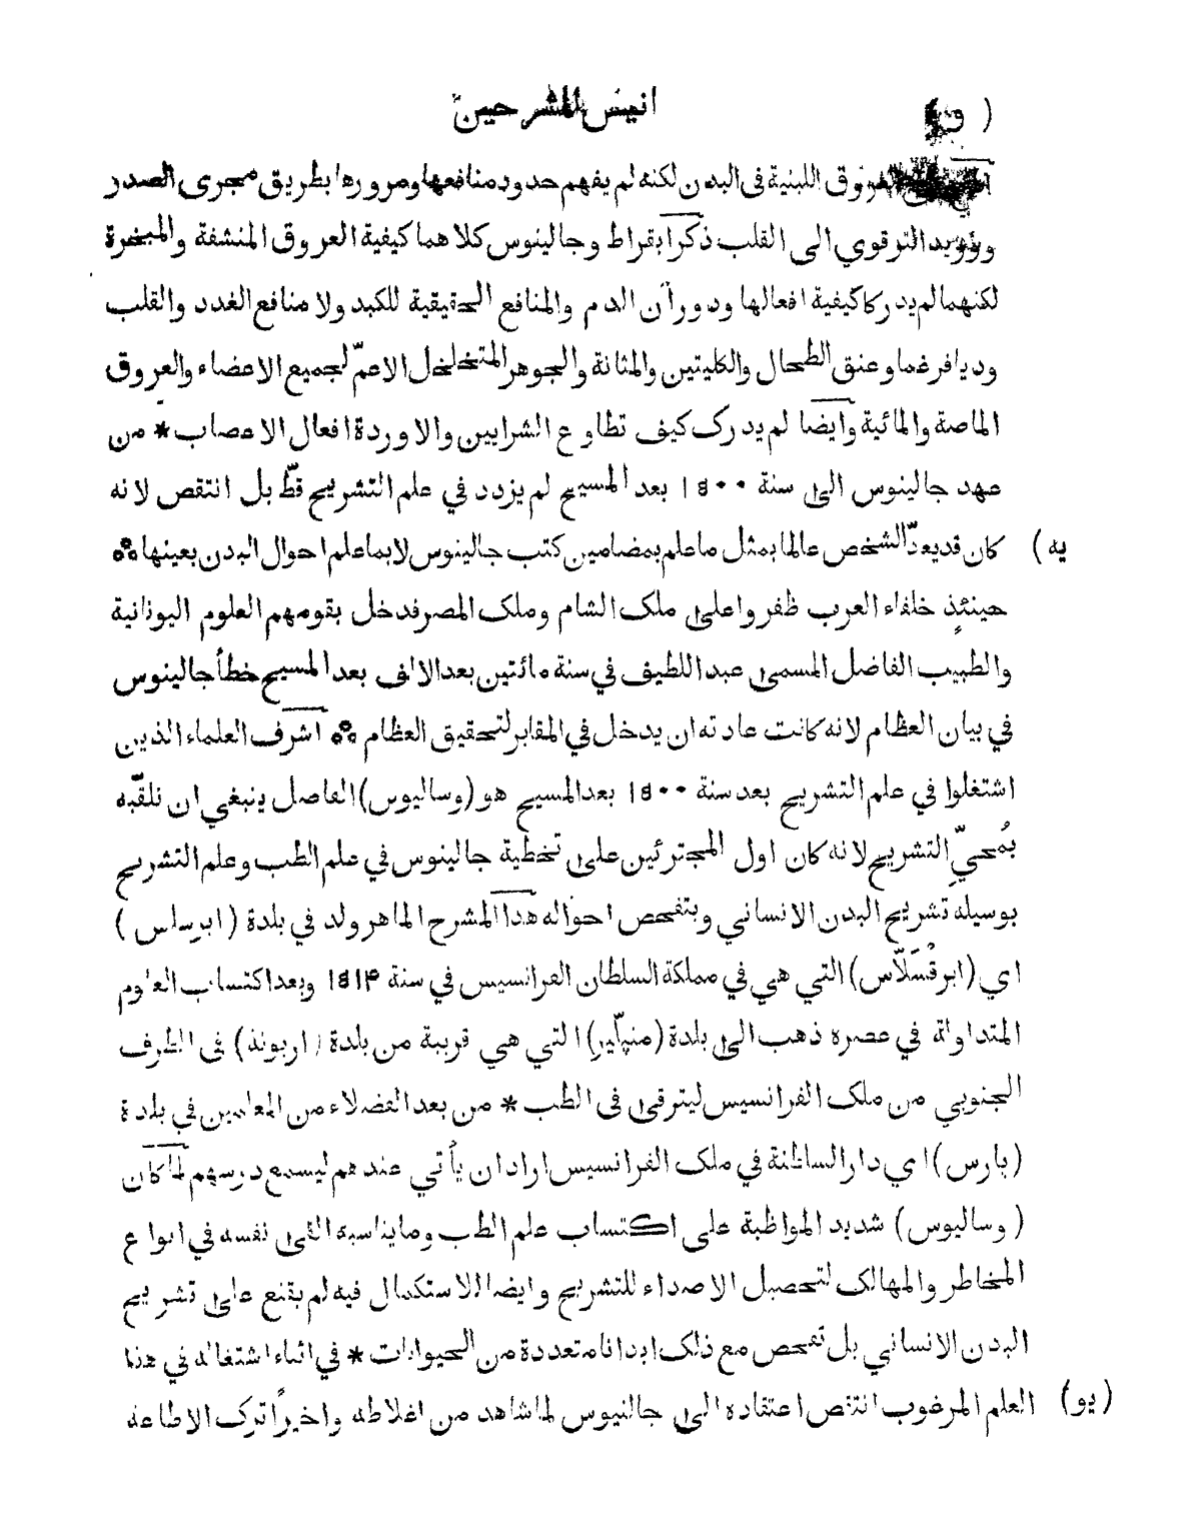 ( و ) انيس المشرحين
العروق اللبنية فى البدن لكنه لم يفهم حدود منافعها ومرورها بطريق مجرى الصدر
ووريد الترقوي الى القلب ذكر ابقراط وجالينوس كلاهما كيفية العروق المنشفة والمبخرة
لكنهما لم يدركا كيفية افعالها ودوران الدم والمنافع الحقيقية للكبد ولا منافع الغدد والقلب
وديافرغما وعنق الطحال والكليتين والمثانة والجوهر المتخلخل الاعمّ لجميع الاعضاء والعروق
الماصة والمائية وايضا لم يدرك كيف تطاوع الشرايين والاوردة افعال الاعصاب * من
عهد جالينوس الى سنة ١٥٠٠ بعد المسيح لم يزدد في علم التشريح قطّ بل انتقص لانه
يه ) كان قد يعدّ الشخص عالما بمثل ما علم بمضامين كتب جالينوس لا بما علم احوال البدن بعينها
حينئذٍ خلفاء العرب ظفروا على ملك الشام وملك المصر فدخل بقومهم العلوم اليونانية
والطبيب الفاضل المسمى عبد اللطيف في سنة مائتين بعد الالف بعد المسيح خطأ جالينوس
في بيان العظام لانه كانت عادته ان يدخل في المقابر لتحقيق العظام اشرف العلماء الذين
اشتغلوا في علم التشريح بعد سنة ١٥٠٠ بعد المسيح هو (وساليوس) الفاضل ينبغي ان نلقّبه
بمُحيّ التشريح لانه كان اول المجترئين على تخطية جالينوس في علم الطب وعلم التشريح
بوسيله تشريح البدن الانساني وبتفحص احواله هذا المشرح الماهر ولد في بلدة (ابرسلس)
اي (ابرقْسَلاّس) التي هي في مملكة السلطان الفرانسيس في سنة ١٥١۴ وبعد اكتساب العلوم
المتداولة في عصره ذهب الى بلدة (منپلّير) التي هي قريبة من بلدة (اربونة) فى الطرف
الجنوبي من ملك الفرانسيس ليترقى فى الطب * من بعد الفضلاء من المعلمين في بلدة
(بارس) اي دار السلطنة في ملك الفرانسيس اراد ان يأتي عندهم ليسمع درسهم لما كان
(وساليوس) شديد المواظبة على اكتساب علم الطب وما يناسبه القى نفسه في انواع
المخاطر والمهالك لتحصيل الاصداء للتشريح وايضا للاستكمال فيه لم يقنع على تشريح
البدن الانساني بل تفحص مع ذلك ابدانا متعددة من الحيوانات * في اثناء اشتغاله في هذا
(يو) العلم المرغوب انتقص اعتقاده الى جالنيوس لما شاهد من اغلاطه واخيراً ترك الاطاعة